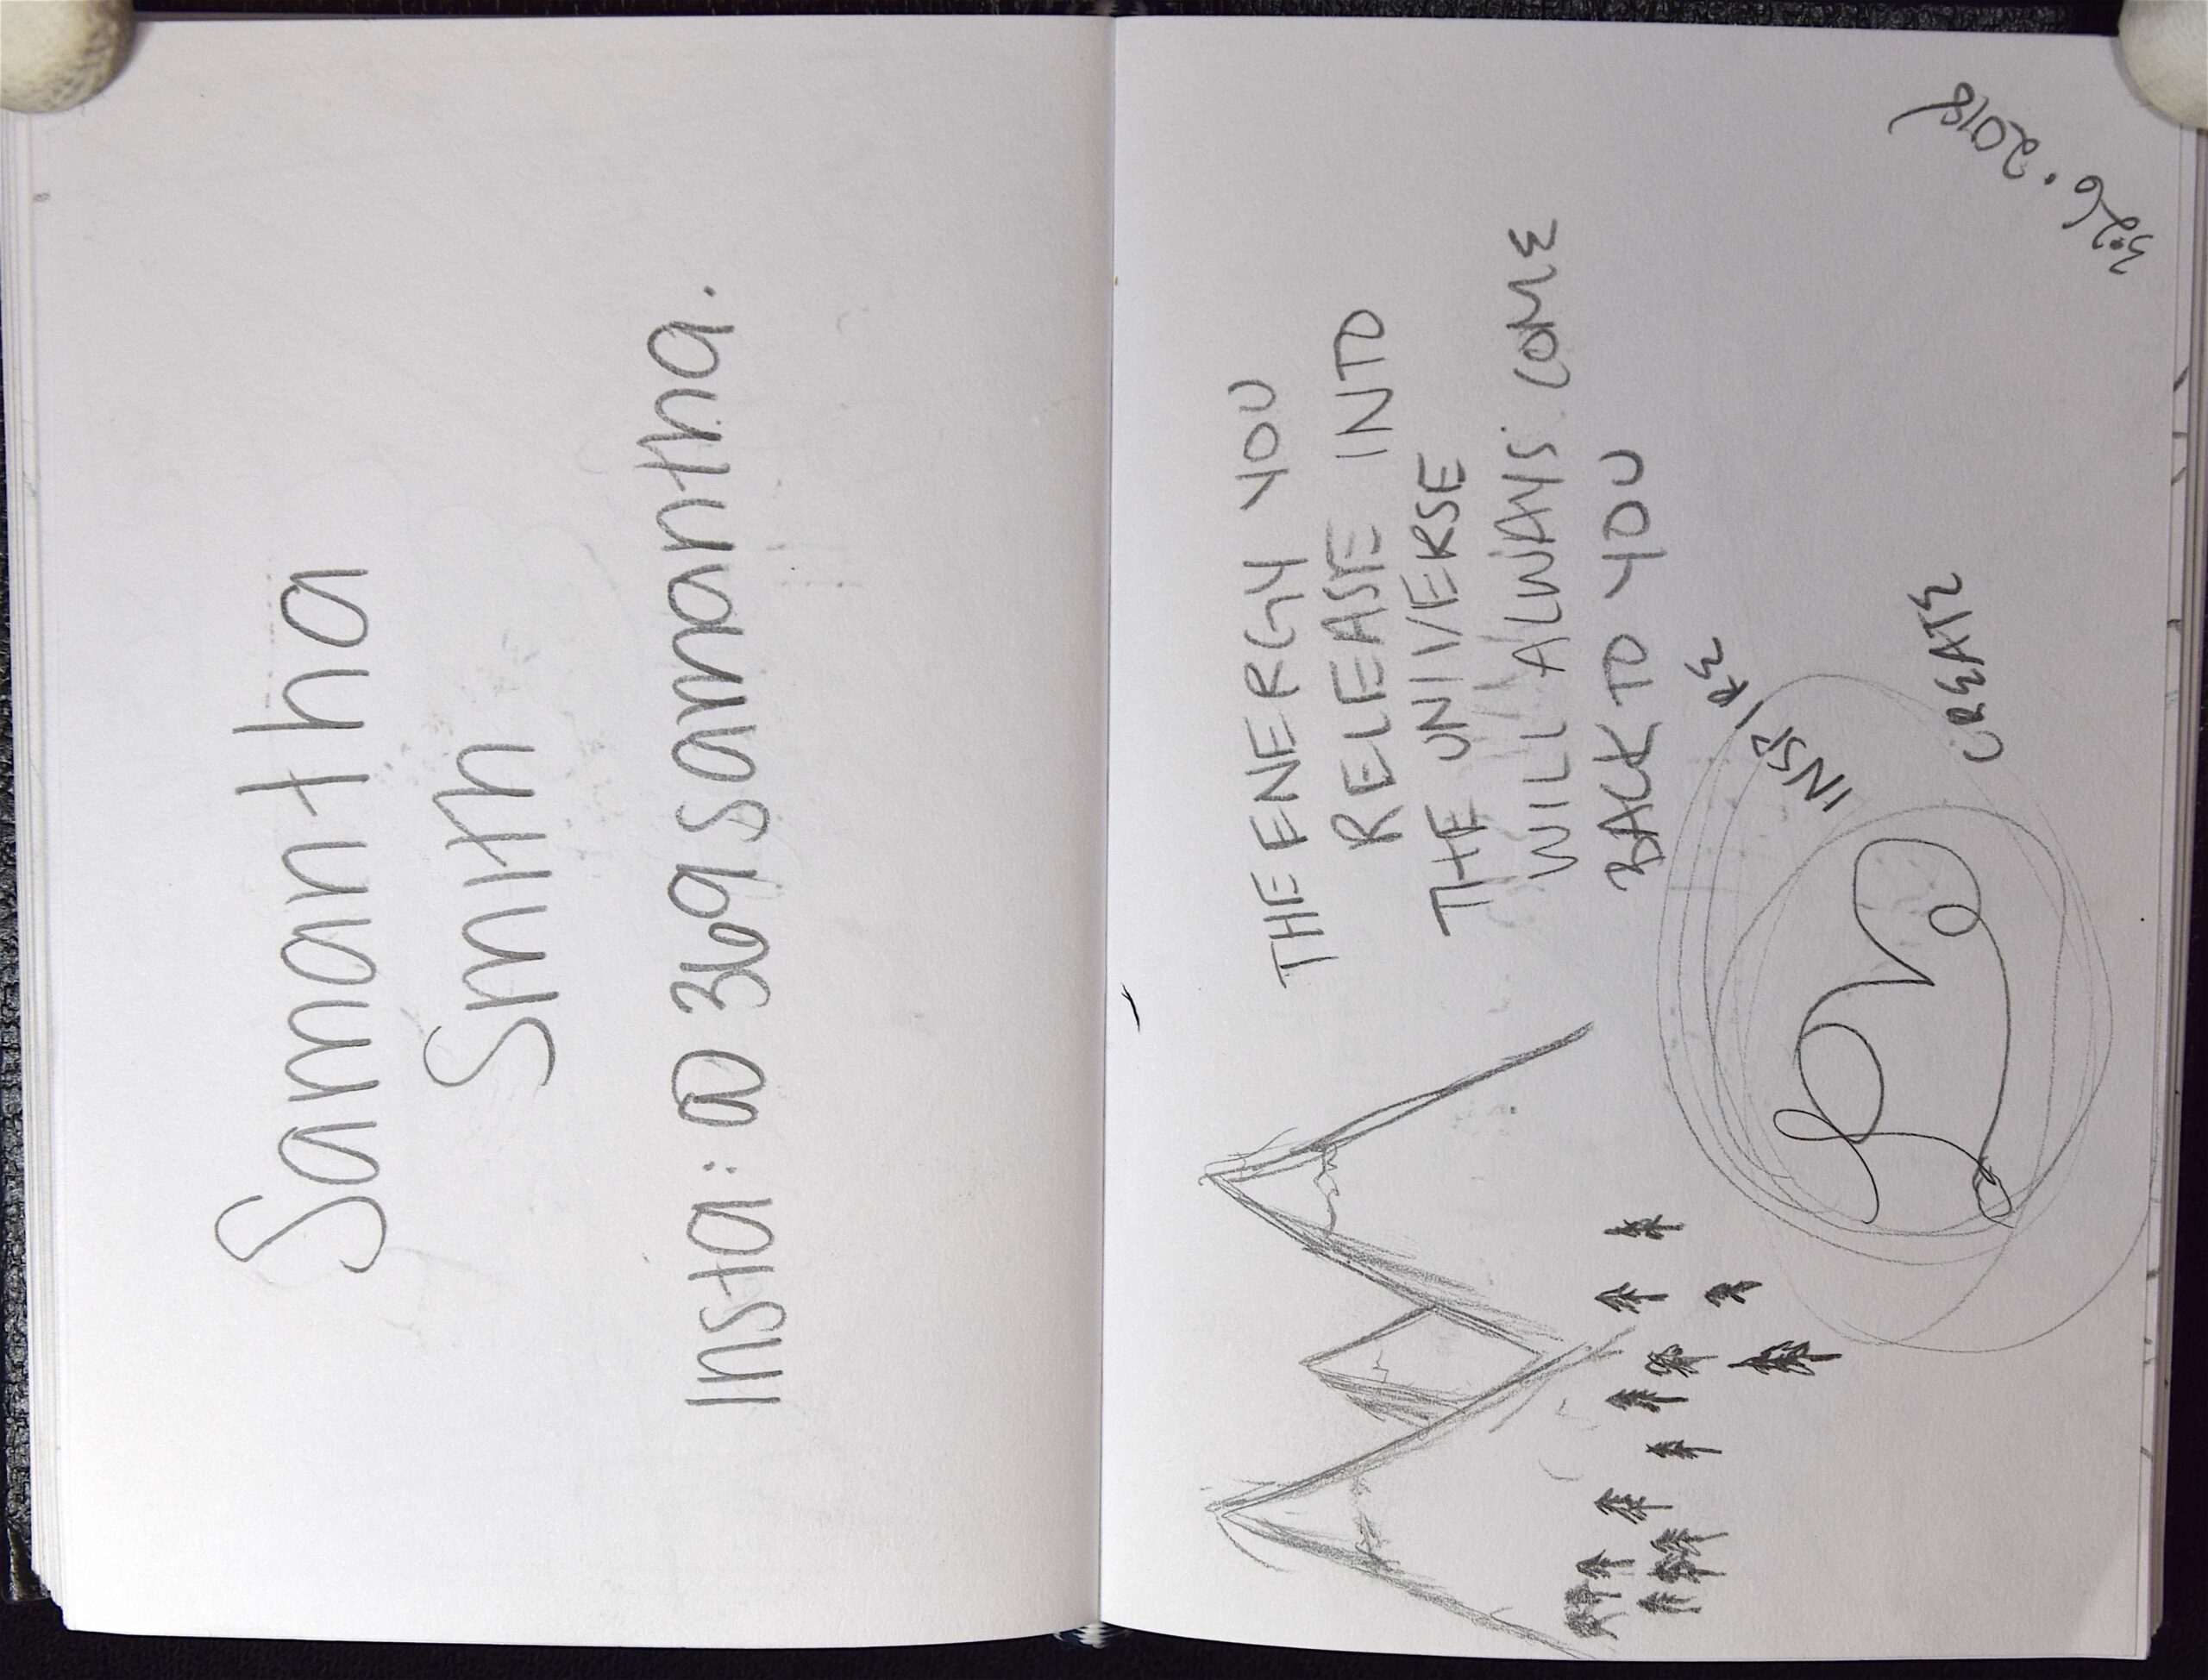 Samantha
Smith
Insta: @369samantha.
THE ENERGY YOU
RELEASE INTO
THE UNIVERSE
WILL ALWAYS COME
BACK TO YOU
INSPIRE
CREATE
3.26.2018